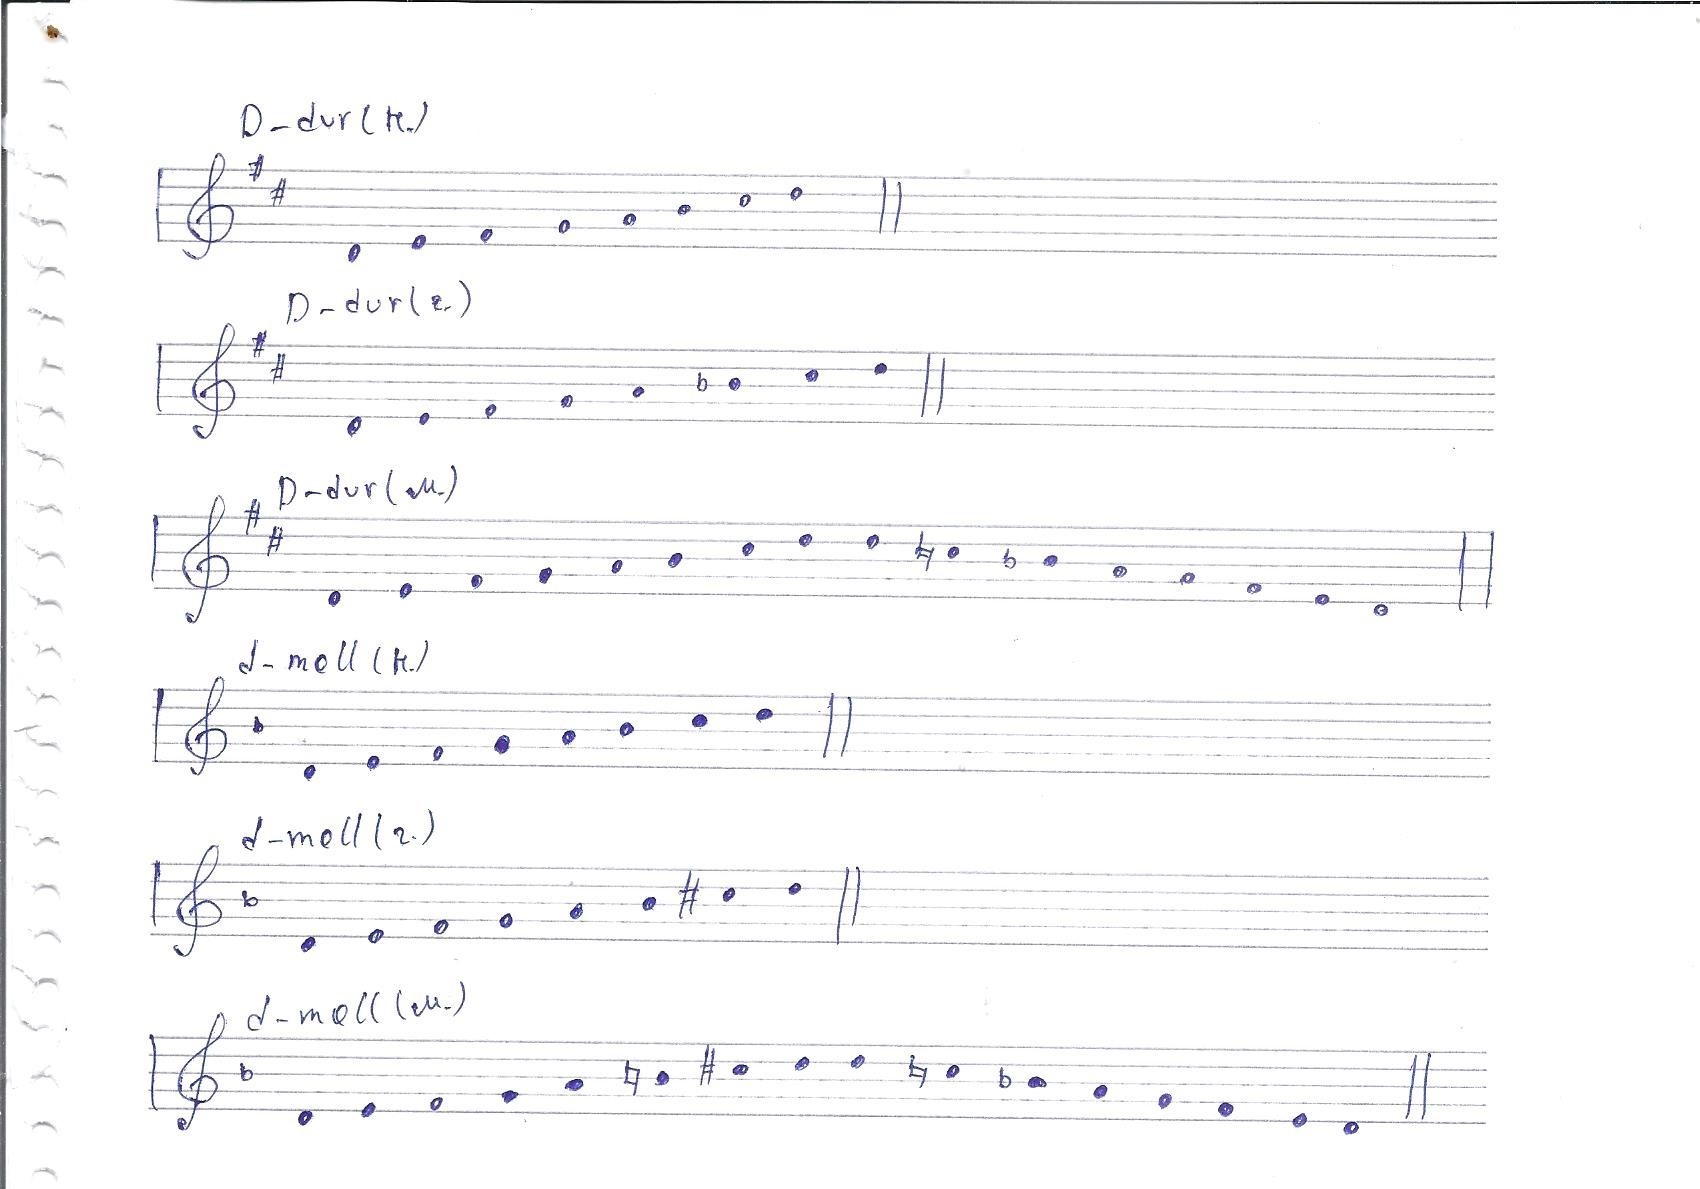 D-dur (н.)
D-dur (г.)
D-dur (м.)
d-moll (н.)
d-moll (г.)
d-moll (м.)